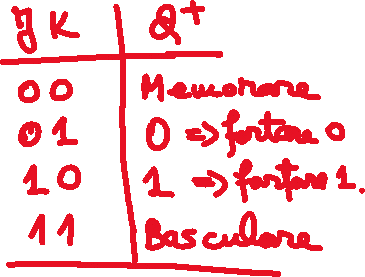 J K Q+
00 Memorare
01 0 => fortare 0
10 1 => fortare 1.
11 Basculare